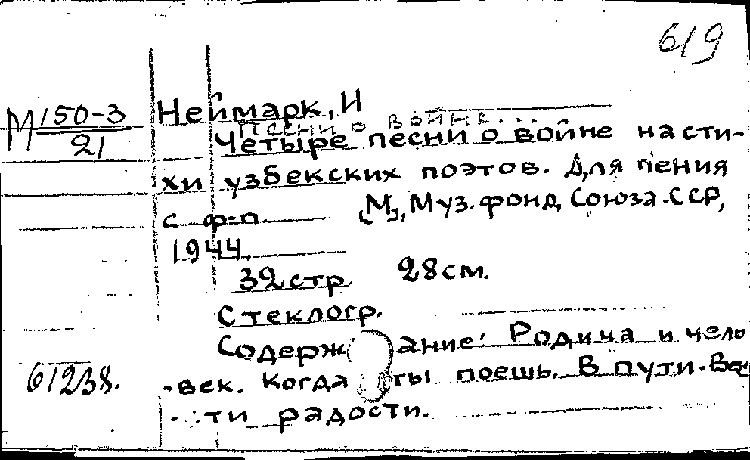 619
М 150-3
21
Неймарк, И
Песни о войне...
Четыре песни о войне на сти-
хи узбекских поэтов. Для пения
с ф-п. М., Муз. фонд Союза ССР,
1944
32 стр. 28 см.
Стеклогр.
Содержание: Родина и чело
-век. Когда ты поешь. В пути.
ти радости.
61238.